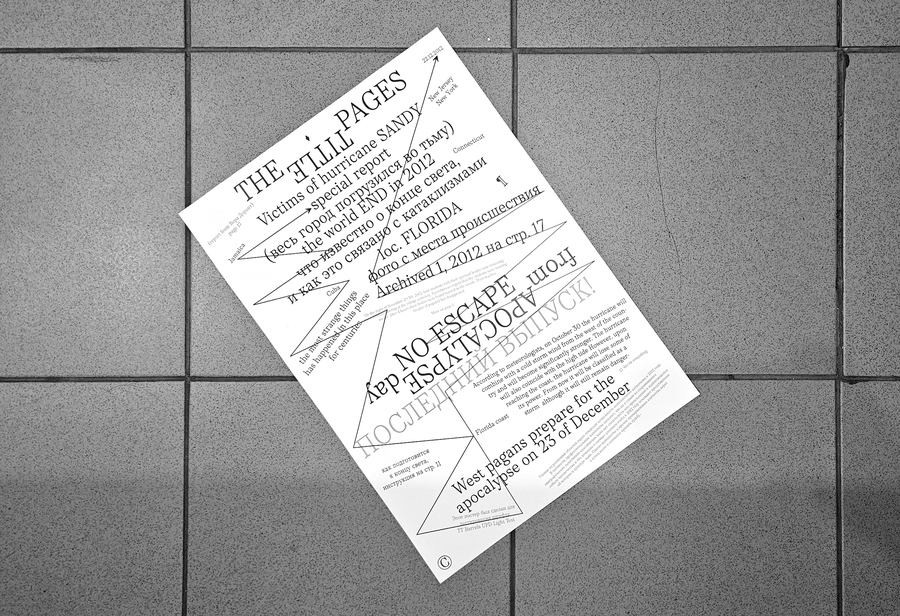 22.12.2012
New Jersey
New York
THE TITLE PAGES
Victims of hurricane SANDY
special report
Connecticut
(весь город погрузился во тьму)
the world END in 2012
что известно о конце света,
и как это связано с катаклизмами
¶
loc. FLORIDA
фото с места происшествия
Archived 1, 2012 на стр. 17
page 12
Jamaica
Cuba
the most strange things
has happened in this place
for centuries
NO ESCAPE from
APOCALYPSE day
ПОСЛЕДНИЙ ВЫПУСК!
According to meteorologists, on October 30 the hurricane will
combine with a cold storm wind from the west of the coun-
try and will become significantly stronger. The hurricane
will also coincide with the high tide However, upon
reaching the coast, the hurricane will lose some of
its power. From now it will be classified as a
storm although it will still remain danger-
Florida coast
West pagans prepare for the
apocalypse on 23 of December
как подготовится
к концу света,
инструкция на стр 11
Этот постер был сделан для
TT Barrels UPD Light Text
©